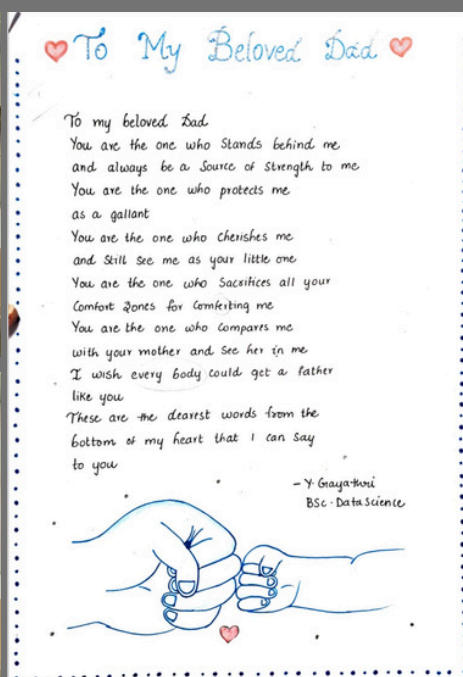 To My Beloved Dad
To my beloved Dad
You are the one who Stands behind me
and always be a Source of Strength to me
You are the one who protects me
as a gallant
You are the one who Cherishes me
and Still See me as your little one
You are the one who Sacrifices all your
Comfort Zones for Comforting me
You are the one who Compares me
with your mother and See her in me
I wish every body could get a father
like you
These are the dearest words from the
bottom of my heart that I can Say
to you
- Y. Gayathri
BSc - Data Science